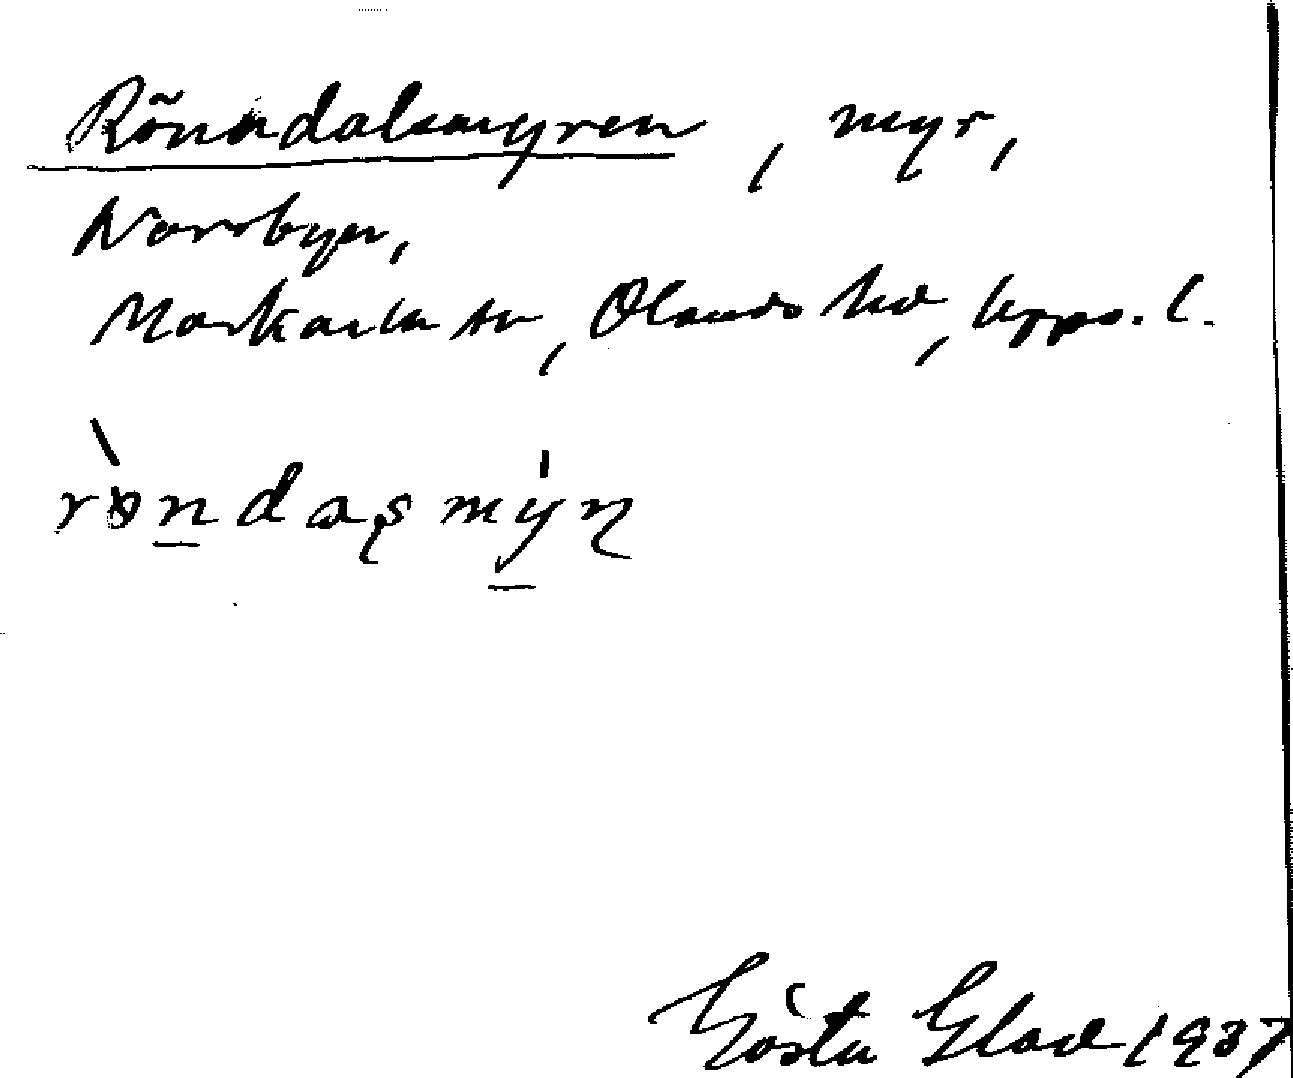 Rönndalsmyren, myr,
Norrbyn,
Morkarla sn, Olands hd, Upps. l.
Gösta Glad 1937